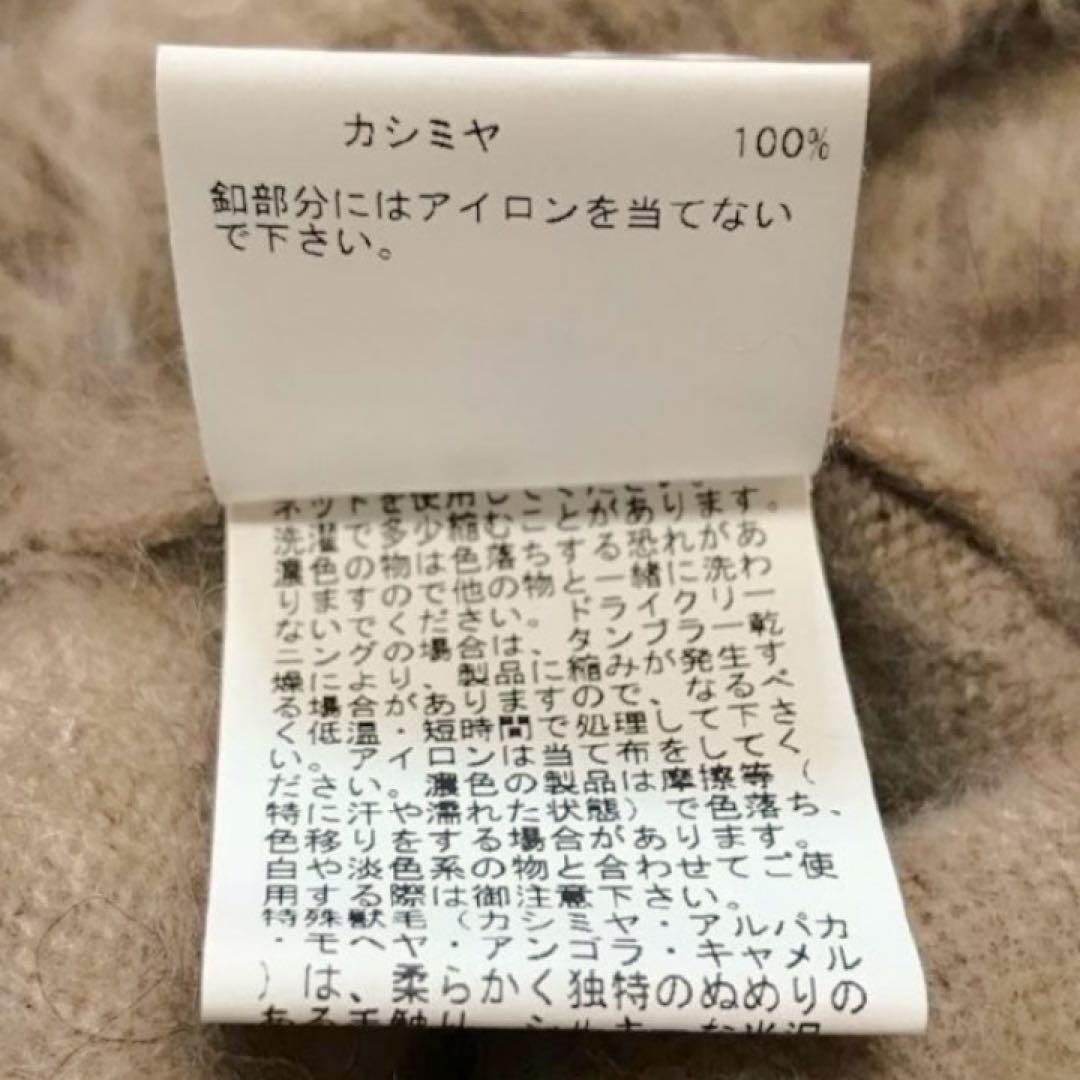 カシミヤ 100%
釦部分にはアイロンを当てない
で下さい。
ネットを使用してください。
洗濯で多少縮むことがあります。
濃色の物は色落ちする恐れがあ
りますので他の物と一緒に洗わ
ないでください。ドライクリー
ニングの場合は、タンブラー乾
燥により、製品に縮みが発生す
る場合がありますので、なるべ
く低温・短時間で処理して下さ
い。アイロンは当て布をしてく
ださい。濃色の製品は摩擦等(
特に汗や濡れた状態)で色落ち、
色移りをする場合があります。
白や淡色系の物と合わせてご使
用する際は御注意下さい。
特殊獣毛(カシミヤ・アルパカ
・モヘヤ・アンゴラ・キャメル
)は、柔らかく独特のぬめりの
ある手触り